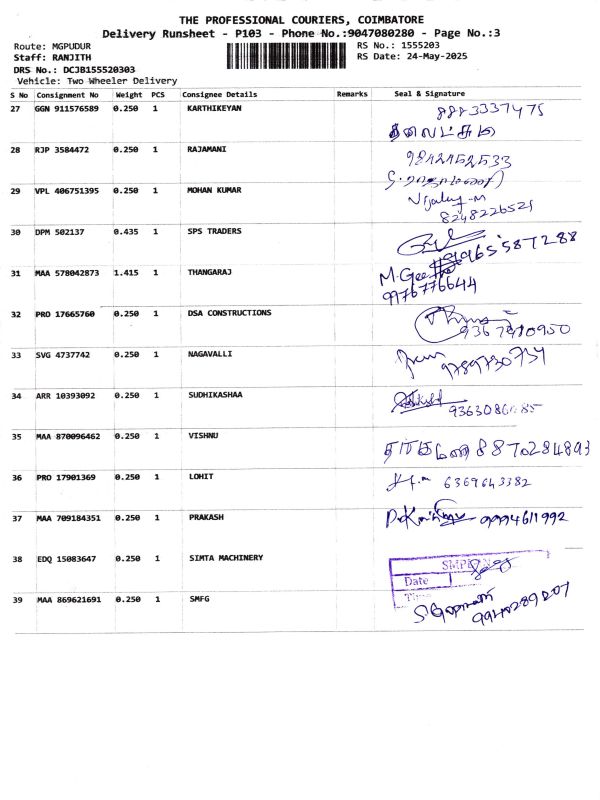 THE PROFESSIONAL COURIERS, COIMBATORE
Delivery Runsheet - P103 - Phone No.:9047080280 - Page No.:3
Route: MGPUDUR
RS No.: 1555203
Staff: RANJITH
RS Date: 24-May-2025
DRS No.: DCJB155520303
Vehicle: Two Wheeler Delivery
S No Consignment No Weight PCS Consignee Details Remarks Seal & Signature
27 GGN 911576589 0.250 1 KARTHIKEYAN 8883337475
28 RJP 3584472 0.250 1 RAJAMANI 9842152533
29 VPL 406751395 0.250 1 MOHAN KUMAR
8248226521
30 DPM 502137 0.435 1 SPS TRADERS
31 MAA 578042873 1.415 1 THANGARAJ M. Geetha
9976776644
32 PRO 17665760 0.250 1 DSA CONSTRUCTIONS
33 SVG 4737742 0.250 1 NAGAVALLI 9789730734
34 ARR 10393092 0.250 1 SUDHIKASHAA
35 MAA 870096462 0.250 1 VISHNU 8870284893
36 PRO 17901369 0.250 1 LOHIT 6369643382
37 MAA 709184351 0.250 1 PRAKASH 9994611992
38 EDQ 15083647 0.250 1 SIMTA MACHINERY
Date
39 MAA 869621691 0.250 1 SMFG S. Gopinath
9940289207